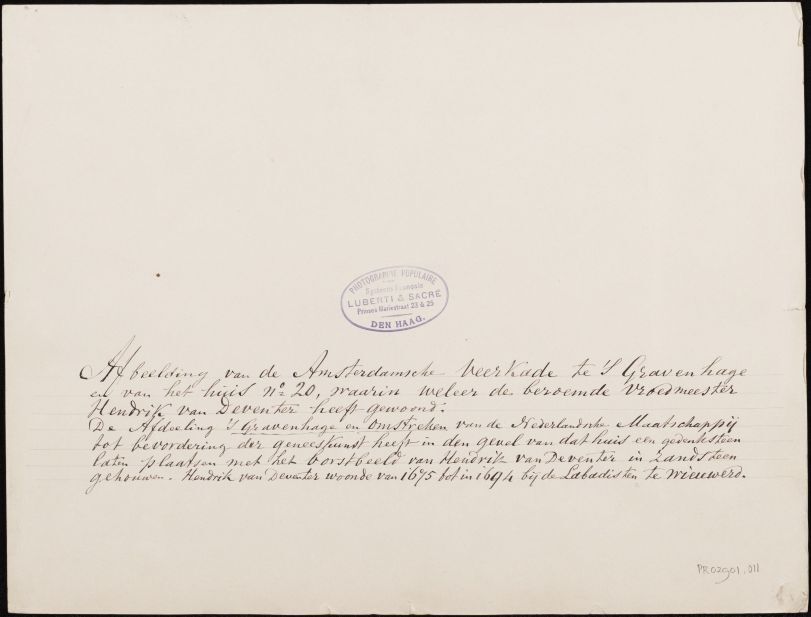 PHOTOGRAPHIE POPULAIRE
Système Français
LUBERTI & SACRÉ
Prinses Mariestraat 23 & 25
DEN HAAG.
Afbeelding van de Amsterdamsche Veerkade te 's Gravenhage
en van het huis No 20, waarin weleer de beroemde vroedmeester
Hendrik van Deventer heeft gewoond.
De Afdeeling 's Gravenhage en Omstreken van de Nederlandsche Maatschappij
tot bevordering der geneeskunst heeft in den gevel van dat huis een gedenksteen
laten plaatsen met het borstbeeld van Hendrik van Deventer in zandsteen
gehouwen. Hendrik van Deventer woonde van 1675 tot in 1694 bij de Labadisten te Wieuwerd.
PR02901.011